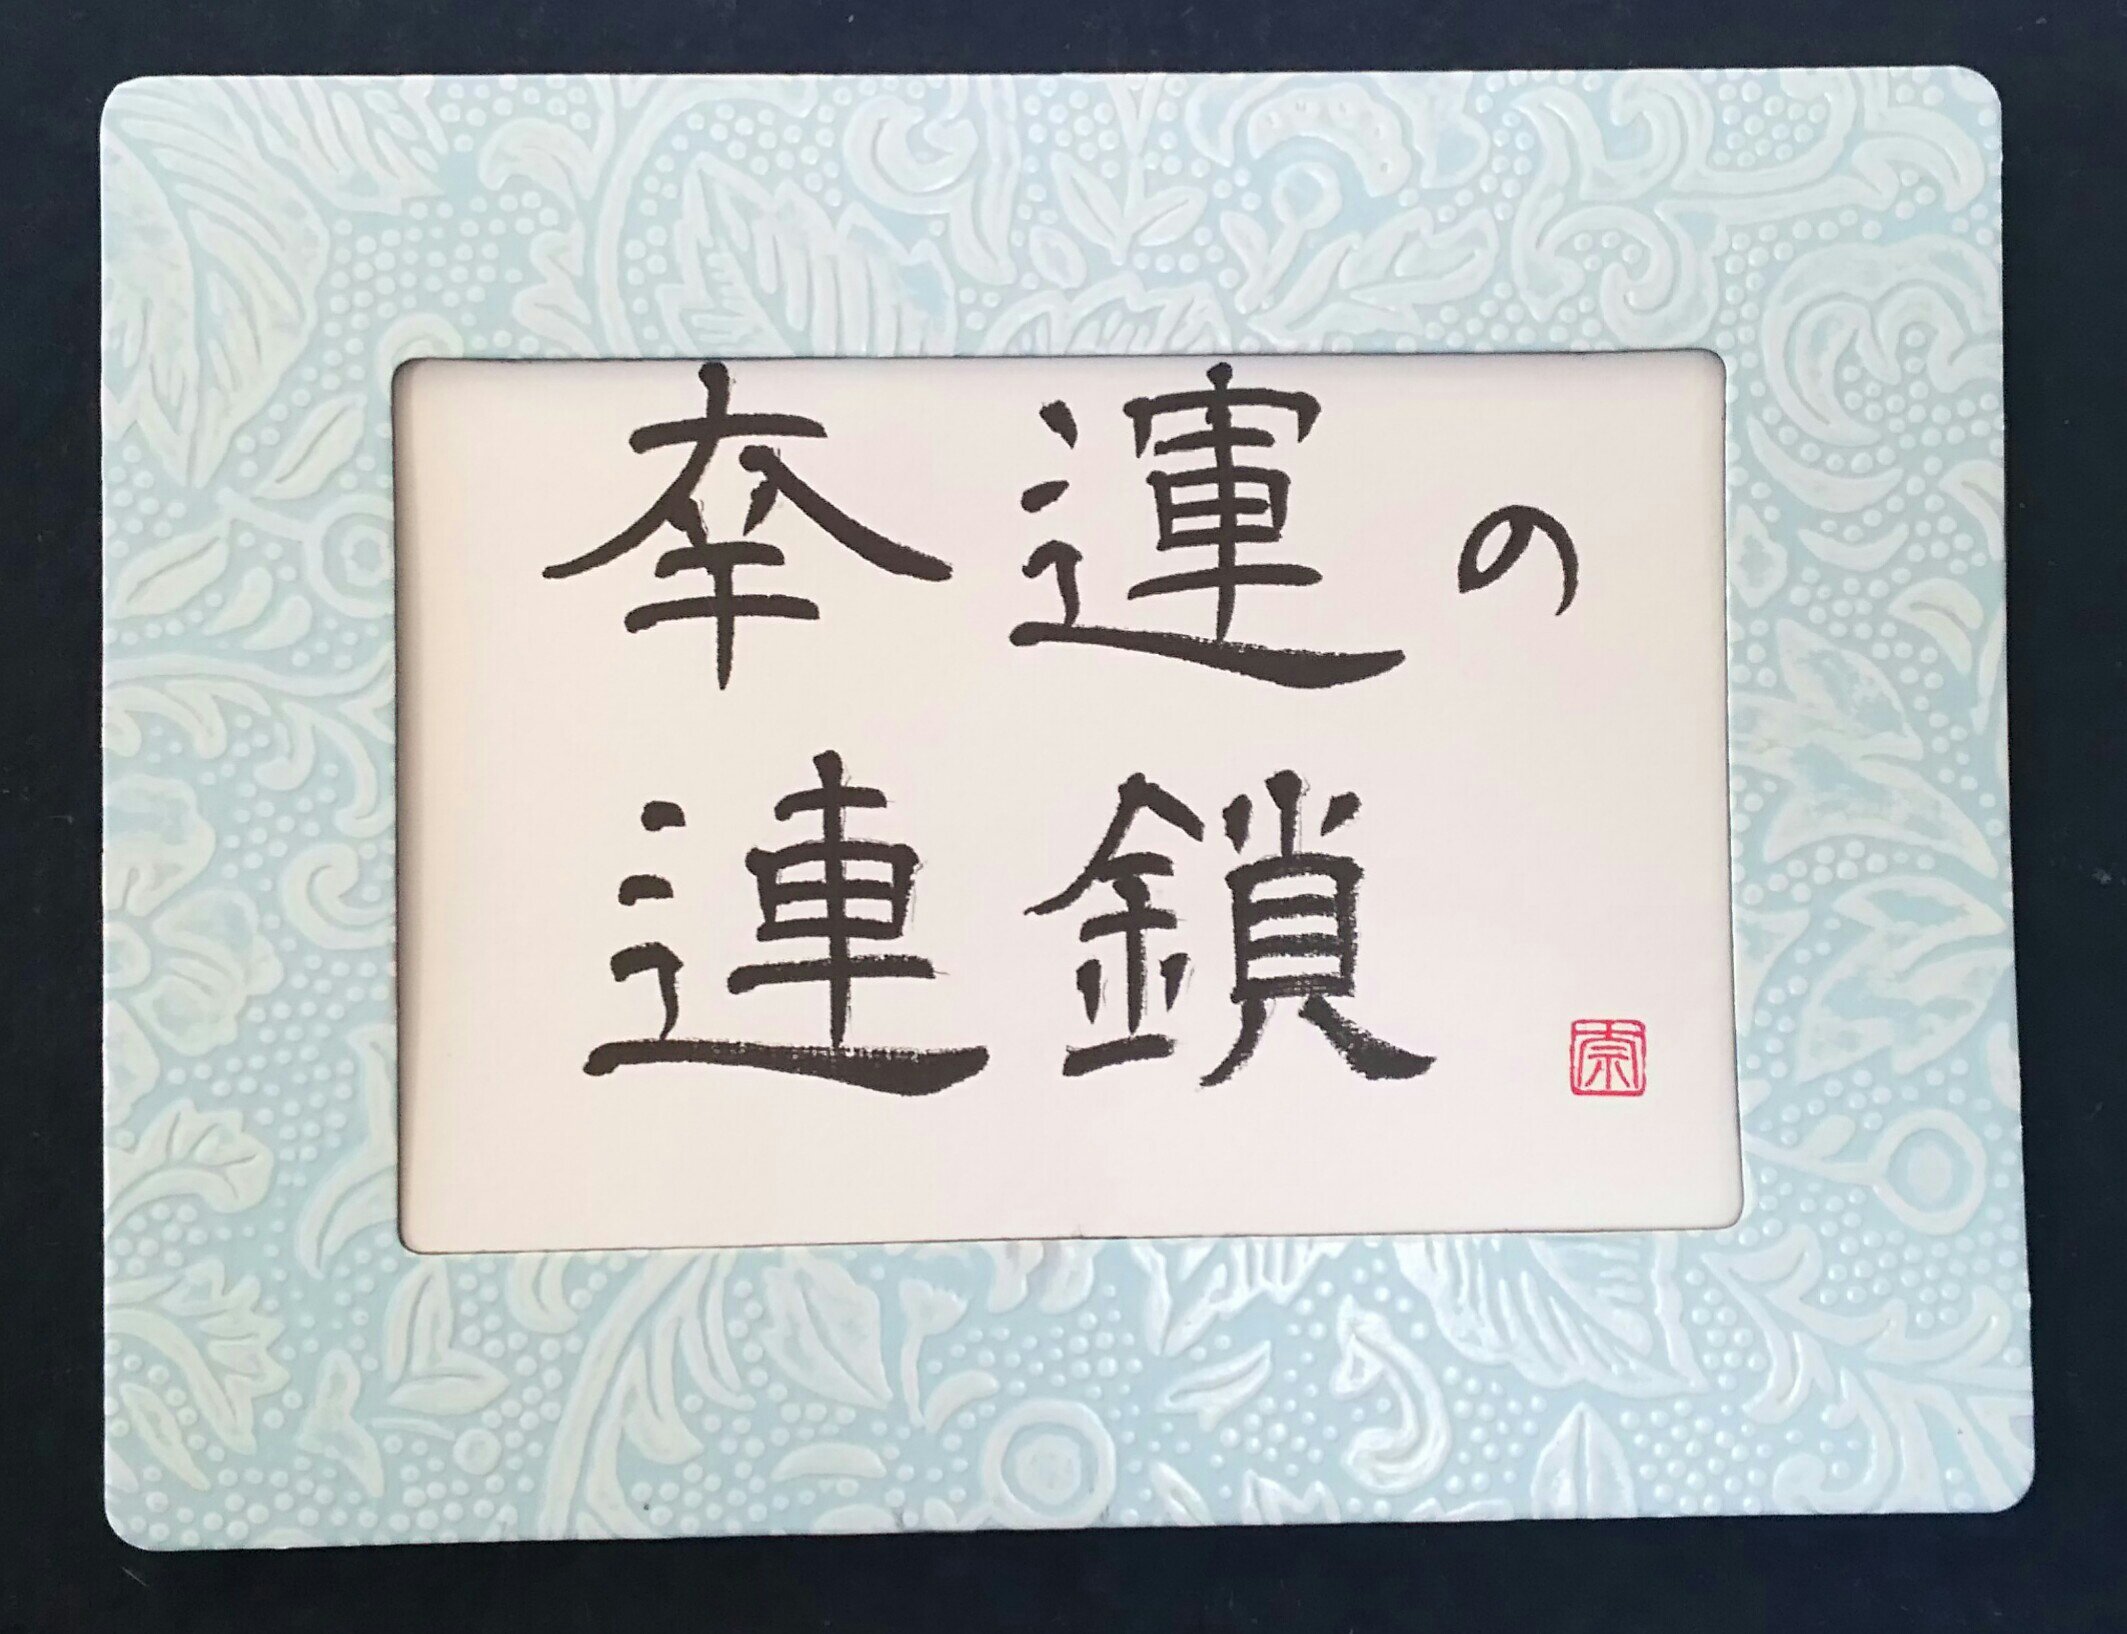 幸運の
連鎖